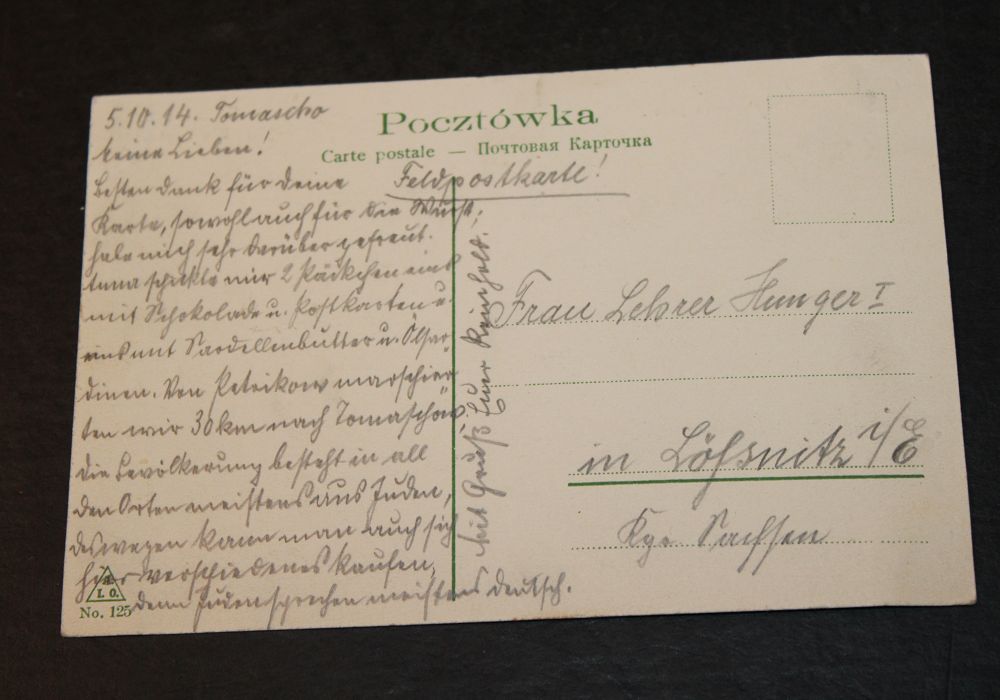 5.10.14. Tomascho
Meine Lieben!
Besten Dank für Deine
Karte, sowohl auch für die Wurst,
habe mich sehr darüber gefreut.
schickte mir 2 Päckchen eins
mit Schokolade u. Postkarten u.
eins mit Sardellenbutter u. Ölsar-
dinen. Von Petrikow marschier-
ten wir 30 km nach Tomaschów,
die Bevölkerung besteht in all
den Orten meistens aus Juden,
deswegen kann man auch sich
hier verschiedenes kaufen,
denn Juden sprechen meistens deutsch.
Mit Gruß Euer Reinhold.
Pocztówka
Carte postale — Почтовая Карточка
Feldpostkarte!
Frau Lehrer Hunger I
in Lößnitz i/E
Kgr Sachsen
I. O.
No. 125